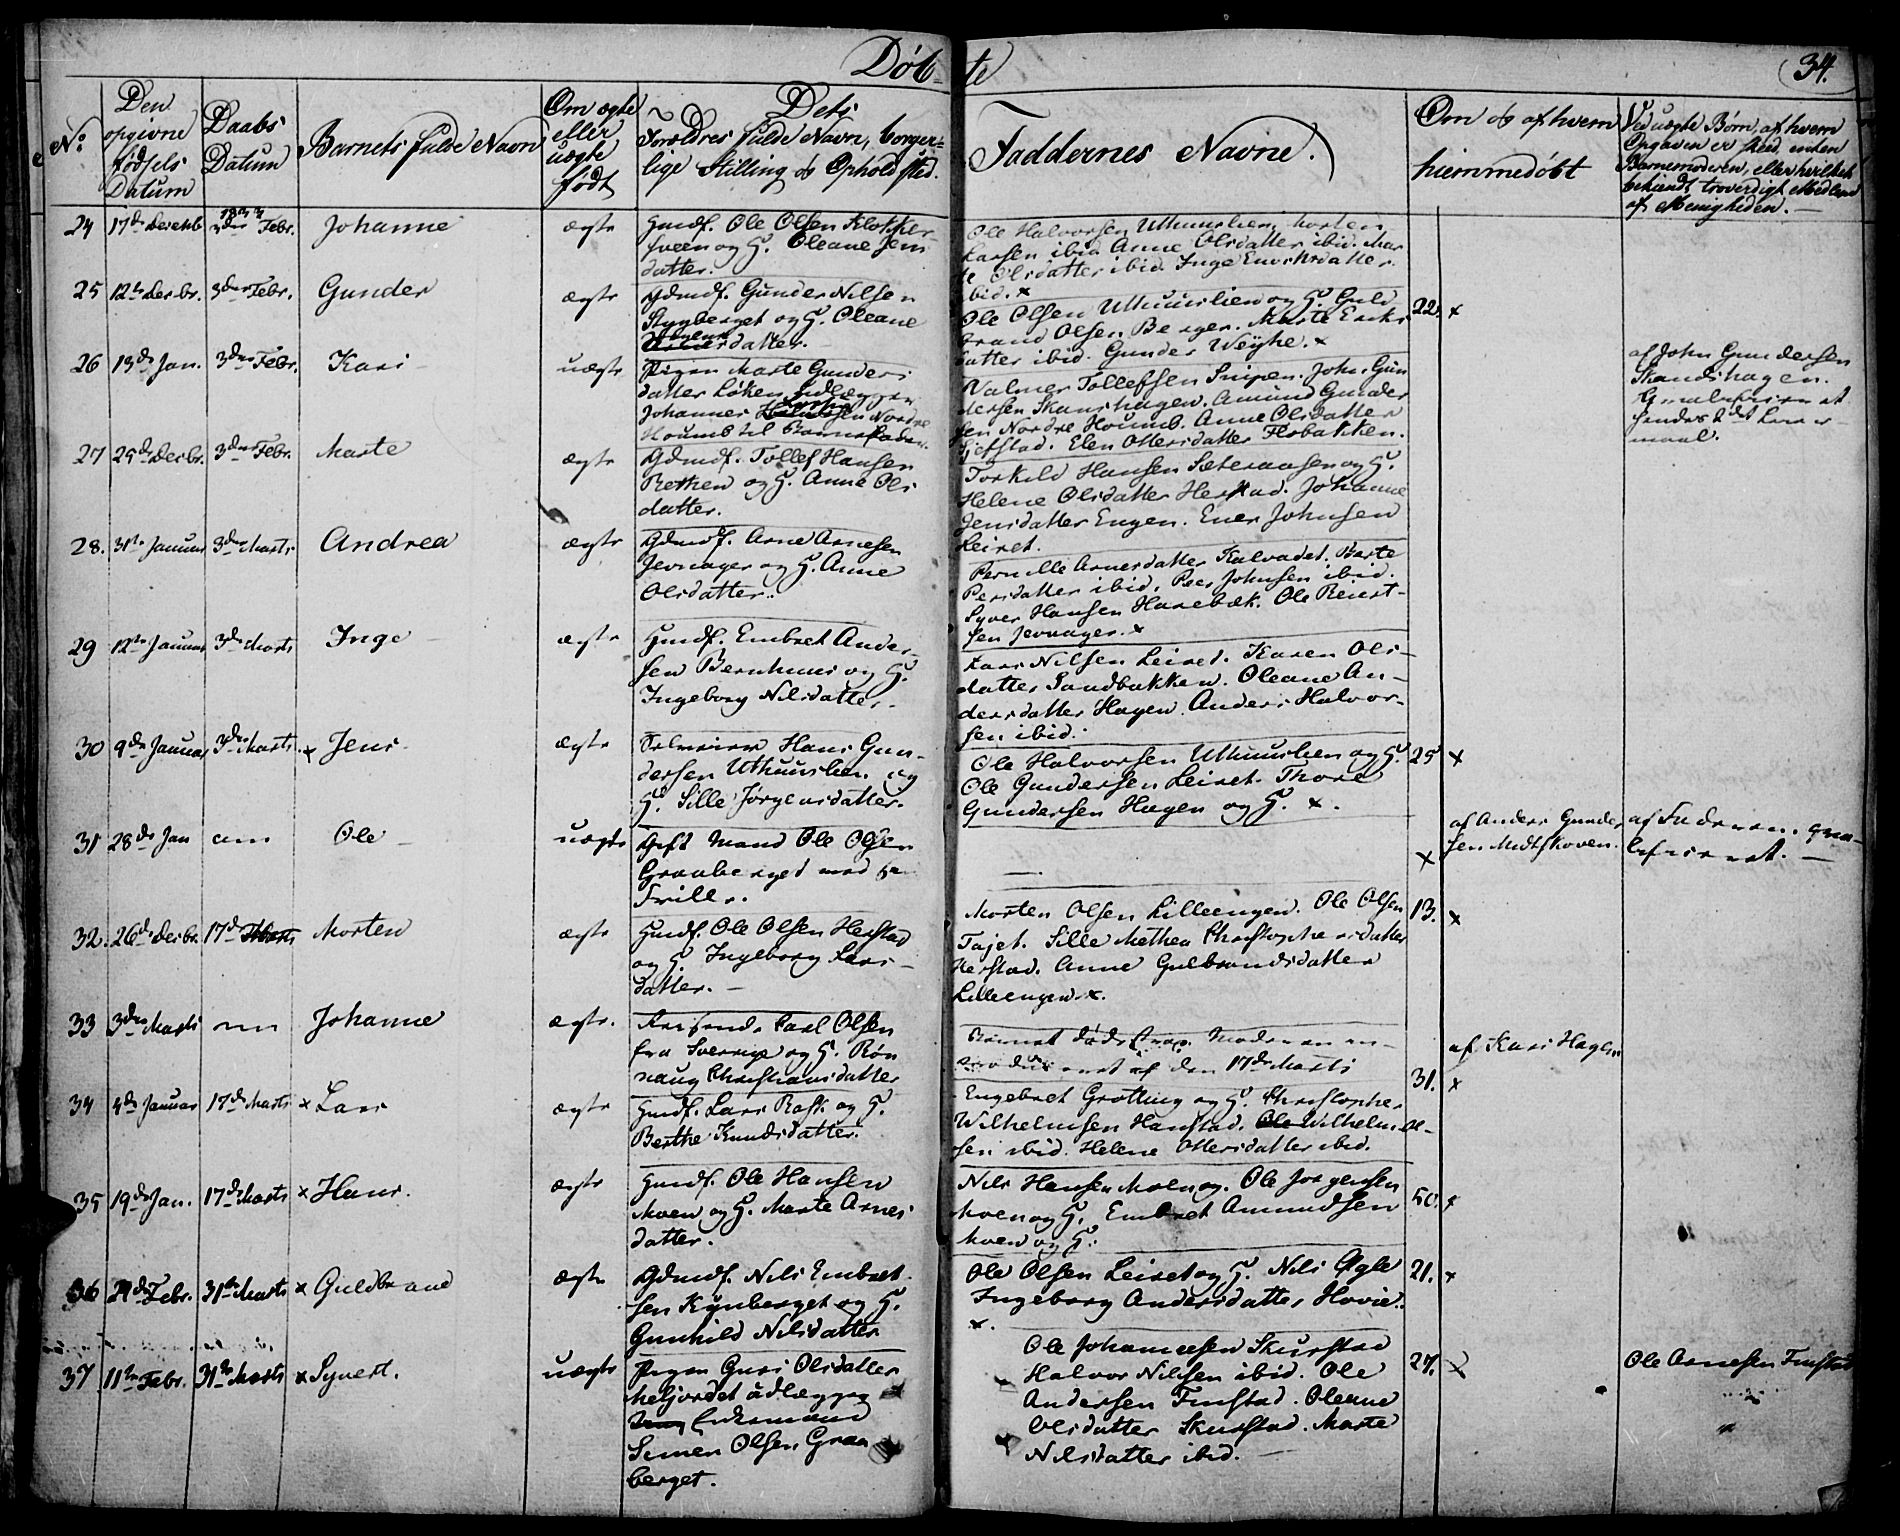 Døb-te
34.
No:
Den opgivne fødsels Datum
Daabs Datum
Barnets fulde Navn
Om ægte eller uægte født
Dets Forældres fulde Navn, borgerlige Stilling og Opholdsted.
Faddernes Navne.
Om og af hvem hiemmedøbt
Ved uægte Børn, af hvem Opgaven er skeed, enten Barnemoderen, eller hvilket bekiendt troverdigt Medlem af Menigheden.
24 17de Decemb 3die Febr. Johanne ægte
Huusf. Ole Olsen Klokker-
sveen og H. Oleane Jens
datter.
Ole Halvorsen Uthuuslien,
Larsen ibid Anne Olsdatter ibid. Mar
te Olsdatter ibid Inge
ibid. x
25 12te Decbr. 3die Febr. Gunder ægte
Gdmdf. Gunder Nilsen
Stygberget og H. Oleane
datter.
Ole Olsen Uthuuslien og H. Guld
brand Olsen Berger. Marte Eriks
datter ibid. Gunder Weyhe. x
22. x
26 13de Jan. 3die Febr. Kari uægte
Pigen Marte Gunders
datter Løken, udlægger
Johannes Nordre
Houmb til Barnefader.
Valmer Tollefsen Snipen. John Gun
dersen Skanshagen. Amund Gunder
sen Nordre Houmb. Anne Olsdatter
Gjetstad. Elen Ottersdatter Flobakken.
af John Gundersen
Skandshagen.
27 25de Decbr. 3die Febr. Marte ægte
Gdmdf. Tollef Hansen
Retken og H. Anne Ols
datter.
Torkild Hansen Sæteraasen og H.
Helene Olsdatter Herstad. Johanne
Jensdatter Engen. Ener Johnsen
Leiret.
28. 31te Januar 3die Marts Andrea ægte
Gdmdf. Arne Arnesen
Jevnager og H. Anne
Olsdatter.
Pernille Arnesdatter Kalvadet. Berte
Persdatter ibid. Peer Johnsen ibid.
Syver Hansen Harebæk. Ole Reiert-
sen Jevnager. x
29 12te Januar 3die Marts Inge ægte
Huusf. Embret Ander-
sen Bernhuus og H.
Ingeborg Nilsdatter.
Lars Nilsen Leiret. Karen Ols-
datter Sandbakken. Oleane An-
dersdatter Hagen. Anders Halvor-
sen ibid.
30 9de Januar 3die Marts x Jens ægte
Hans Gun-
dersen Uthuuslien og
H. Sille Jørgensdatter.
Ole Halvorsen Uthuuslien og H.
Ole Gundersen Leiret. Thore
Gundersen Hagen og H. x.
25 x
31 28de Jan Ole uægte
Gift Mand Ole Olsen
Graaberget med
Frille.
x
af Anders Gunder
sen Midtskoven.
af Faderen.
32. 26de Decbr. 17de Marts Morten ægte
Huusf. Ole Olsen Herstad
og H. Ingeborg Lars-
datter.
Morten Olsen Lilleengen. Ole Olsen
Tajet. Sille Mathea Christophersdatter
Herstad. Anne Gulbrandsdatter
Lilleengen. x.
13. x
33 3die Marts Johanne ægte.
Reisende Carl Olsen
fra Sverrige og H. Røn
naug Christiansdatter
Barnet døde strax. Moderen
den 17de Marts
af Kari Hagen
34 4de Januar 17de Marts x Lars ægte
Huusf. Lars Rask og H.
Berthe Knudsdatter.
Engebret Grøtting og H. Christopher
Wilhelmsen Harstad. Ole Wilhelm
sen ibid. Helene Ottersdatter ibid.
31. x
35 19de Jan. 17de Marts x Hans. ægte
Huusf. Ole Hansen
Moen og H. Marte Arnes
datter.
Nils Hansen Moen og. Ole Jørgensen
Moen og H. Embret Amundsen
Moen og H.
50. x
36 24de Febr. 31te Marts x Guldbrand ægte
Gdmdf. Nils Embret-
sen Kynberget og H.
Gunhild Nilsdatter
Ole Olsen Leiret og H. Nils Ogle
Ingeborg Andersdatter Hovie.
x.
21. x
37 11te Febr. 31te Marts x Syvert. uægte
Pigen Guri Olsdatter
Mefjordet udlægger
Enkemand
Simen Olsen Graa
berget.
Ole Johannesen Skurstad
Halvor Nilsen ibid. Ole
Andersen Finstad. Oleane
Olsdatter Skurstad. Marte
Nilsdatter ibid.
27. x
Ole Arnesen Finstad